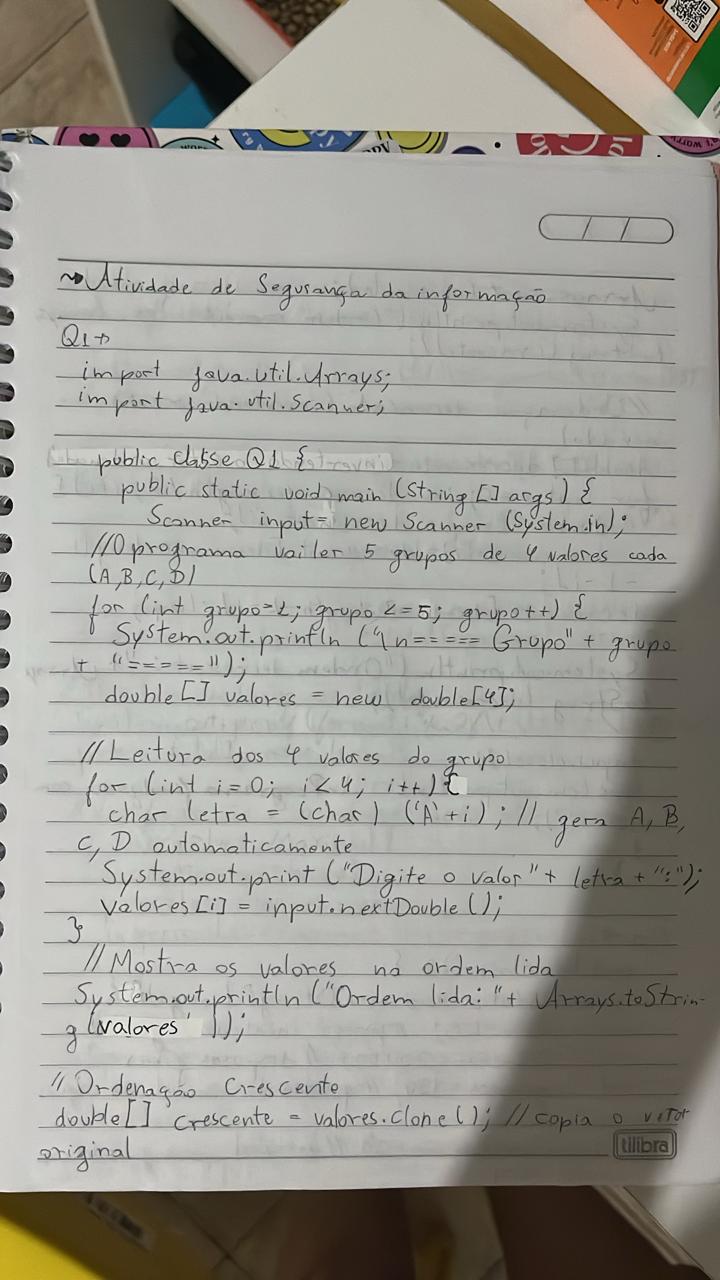 ~Atividade de Segurança da informação
Q1→
import java.util.Arrays;
import java.util.Scanner;
public classe Q1 {
public static void main (String [] args) {
Scanner input = new Scanner (System.in);
//O programa vai ler 5 grupos de 4 valores cada
(A,B,C,D)
for (int grupo=1; grupo <=5; grupo++) {
System.out.println ("\n===== Grupo" + grupo
+ "=====");
double [] valores = new double[4];
//Leitura dos 4 valores do grupo
for (int i=0; i<4; i++){
char letra = (char) ('A'+i); // gera A, B,
C, D automaticamente
System.out.print ("Digite o valor"+ letra + ":");
valores [i] = input.nextDouble ();
}
//Mostra os valores na ordem lida
System.out.println ("Ordem lida: "+ Arrays.toStrin-
g (valores ));
// Ordenação Crescente
double[] crescente = valores.clone(); // copia o vetor
original
tilibra